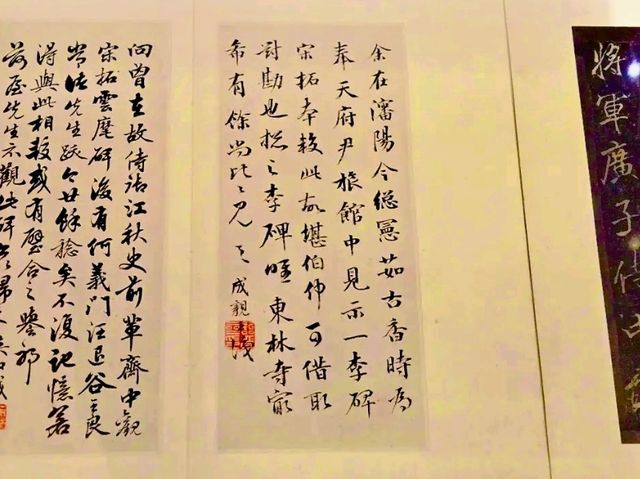 將軍廣子侍中
余在瀋陽今總憲茹古香時爲
奉天府尹旅館中見示一李碑
宋拓本較此故堪伯仲可借取
對勘也捴之李碑唯東林寺最
希有餘尚比〻見之 成親
向曾在故侍御江秋史前輩齋中觀
宋拓雲麾碑後有何義門汪退谷王良
常諸先生跋今廿餘稔矣不復記憶若
得與此相較或有璧合之譽耶
先生